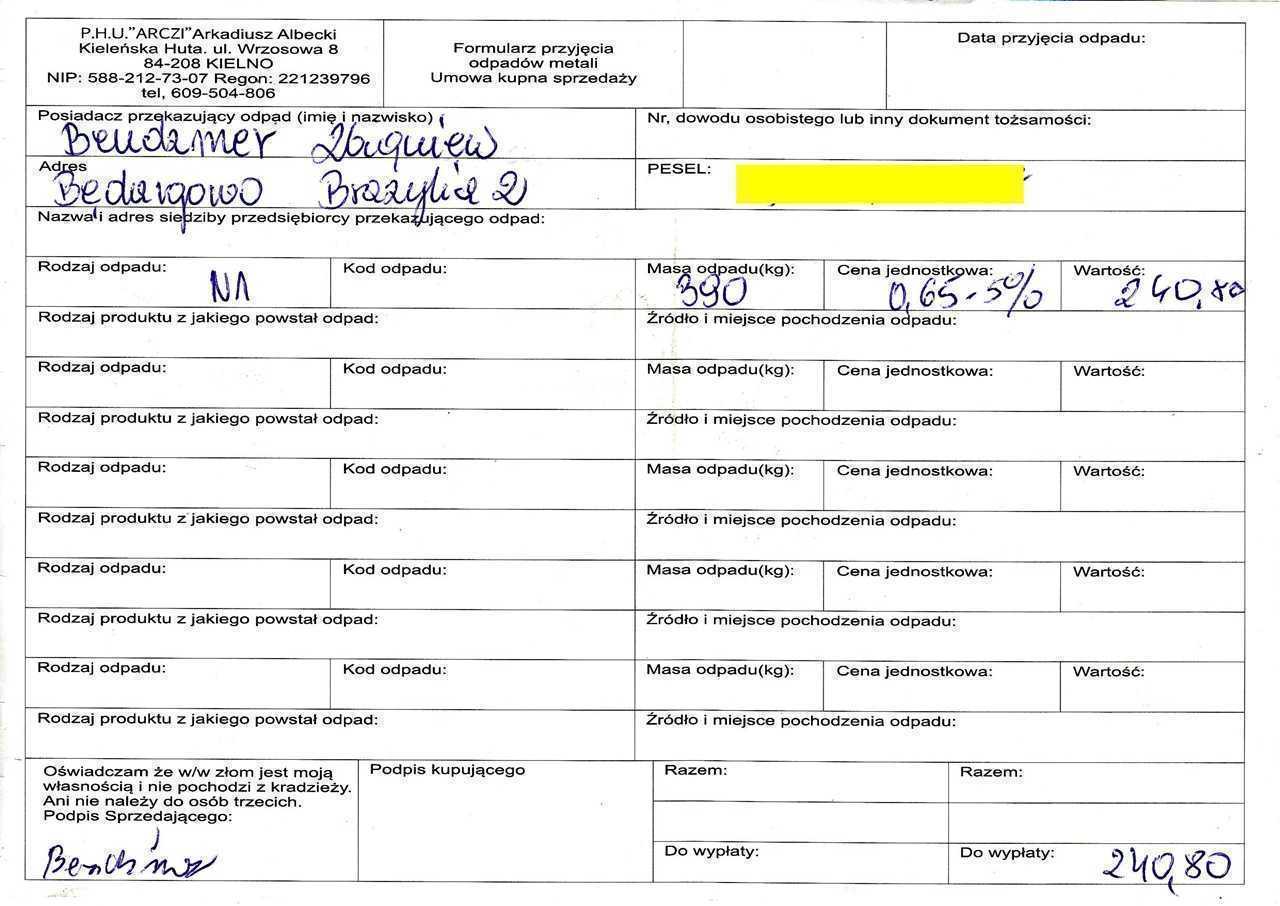 P.H.U."ARCZI"Arkadiusz Albecki
Kieleńska Huta. ul. Wrzosowa 8
84-208 KIELNO
NIP: 588-212-73-07 Regon: 221239796
tel, 609-504-806
Formularz przyjęcia
odpadów metali
Umowa kupna sprzedaży
Data przyjęcia odpadu:
Posiadacz przekazujący odpad (imię i nazwisko)
Zbigniew
Nr, dowodu osobistego lub inny dokument tożsamości:
Adres
Będargowo Brazylia 2
PESEL:
Nazwa i adres siedziby przedsiębiorcy przekazującego odpad:
Rodzaj odpadu: Kod odpadu: Masa odpadu(kg): Cena jednostkowa: Wartość:
390 0,65-5% 240,80
Rodzaj produktu z jakiego powstał odpad: Źródło i miejsce pochodzenia odpadu:
Rodzaj odpadu: Kod odpadu: Masa odpadu(kg): Cena jednostkowa: Wartość:
Rodzaj produktu z jakiego powstał odpad: Źródło i miejsce pochodzenia odpadu:
Rodzaj odpadu: Kod odpadu: Masa odpadu(kg): Cena jednostkowa: Wartość:
Rodzaj produktu z jakiego powstał odpad: Źródło i miejsce pochodzenia odpadu:
Rodzaj odpadu: Kod odpadu: Masa odpadu(kg): Cena jednostkowa: Wartość:
Rodzaj produktu z jakiego powstał odpad: Źródło i miejsce pochodzenia odpadu:
Rodzaj odpadu: Kod odpadu: Masa odpadu(kg): Cena jednostkowa: Wartość:
Rodzaj produktu z jakiego powstał odpad: Źródło i miejsce pochodzenia odpadu:
Oświadczam że w/w złom jest moją
własnością i nie pochodzi z kradzieży.
Ani nie należy do osób trzecich.
Podpis Sprzedającego:
Podpis kupującego
Razem: Razem:
Do wypłaty: Do wypłaty: 240,80